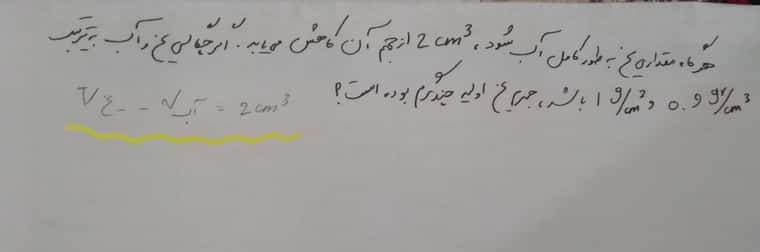 هرگاه مقداری یخ به طور کامل آب شود، 2 cm³ از حجم آن کاهش می‌یابد. اگر چگالی یخ و آب به ترتیب
0.9 gr/cm³ و 1 g/cm³ باشد، جرم یخ اولیه چند گرم بوده است؟
V یخ - V آب = 2 cm³